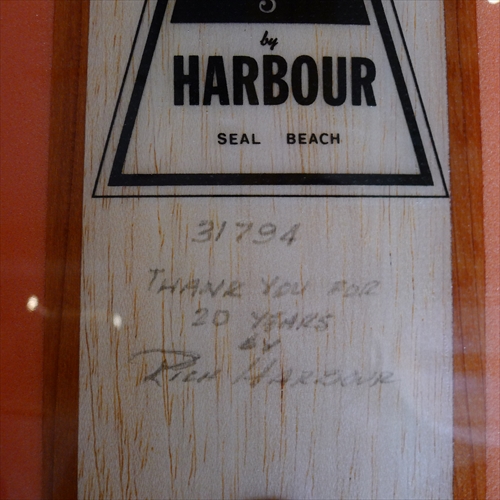 by
HARBOUR
SEAL BEACH
31794
THANK YOU FOR
20 YEARS
BY
RICH HARBOUR